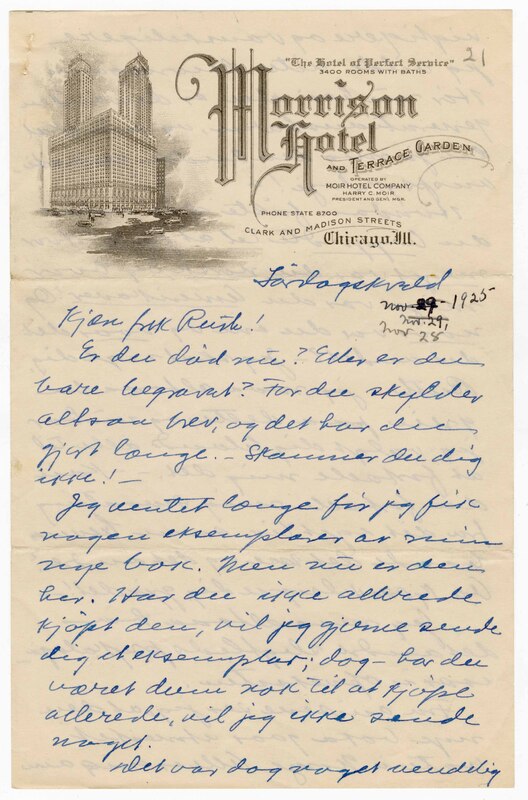 21
"The Hotel of Perfect Service"
3400 ROOMS WITH BATHS
Morrison
Hotel
AND TERRACE GARDEN
OPERATED BY
MOIR HOTEL COMPANY
HARRY C. MOIR
PRESIDENT AND GENL MGR.
PHONE STATE 8700
CLARK AND MADISON STREETS
Chicago, Ill.
Lördagskveld
nov 29 1925
nov. 29,
nov 28
Kjære frk Ruth!
Er du död nu? Eller er du
bare begravet? For du skylder
altsaa brev, og det har du
gjort længe. - Skammer du dig
ikke! -
Jeg ventet længe før jeg fik
nogen eksemplarer av min
nye bok. Men nu er den
her. Har du ikke allerede
kjöpt den, vil jeg gjerne sende
dig et eksemplar; dog - har du
været dum nok til at kjöpe
allerede, vil jeg ikke sende
noget.
Det var dog noget uendelig